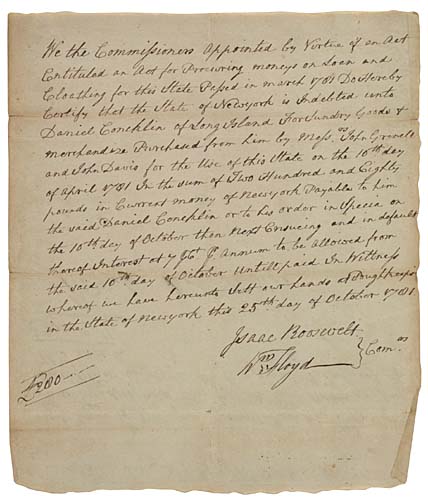 We the Commissioners Appointed by Virtue of an Act
Entituled an Act for Procuring moneys on Loan and
Cloathing for this State Passed in march 1781 Do Hereby
Certify that the State of Newyork is Indebted unto
Daniel Concklin of Long Island For Sundry Goods &
merchandize Purchased from him by Mess.rs John Grenell
and John Davis for the Use of this State on the 10th day
of April 1781 In the sum of Two Hundred and Eighty
pounds in Current money of Newyork Payable to him
the said Daniel Concklin or to his order in Specia on
the 10th day of October then Next Ensueing and in default
thereof Interest at 7 Pr Ct Pr Annum to be allowed from
the said 10th day of October Untill paid In Wittness
whereof we have hereunto Sett our hands at Poughkeepsie
in the State of Newyork this 25th day of October 1781
Isaac Roosevelt
Wm Floyd } Com.rs
£280